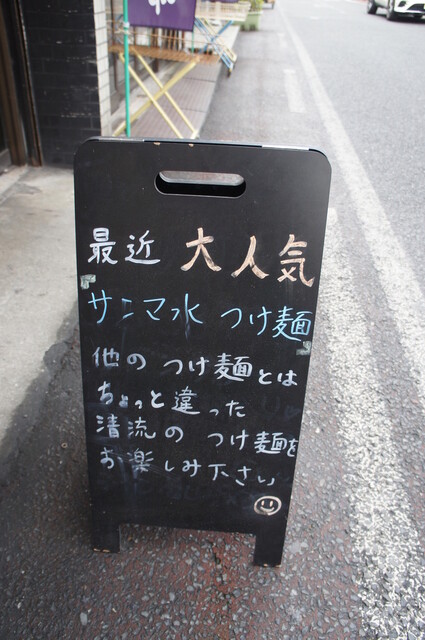 最近 大人気
「サンマ水 つけ麺」
他の つけ麺とは
ちょっと違った
清流の つけ麺を
お楽しみ下さい